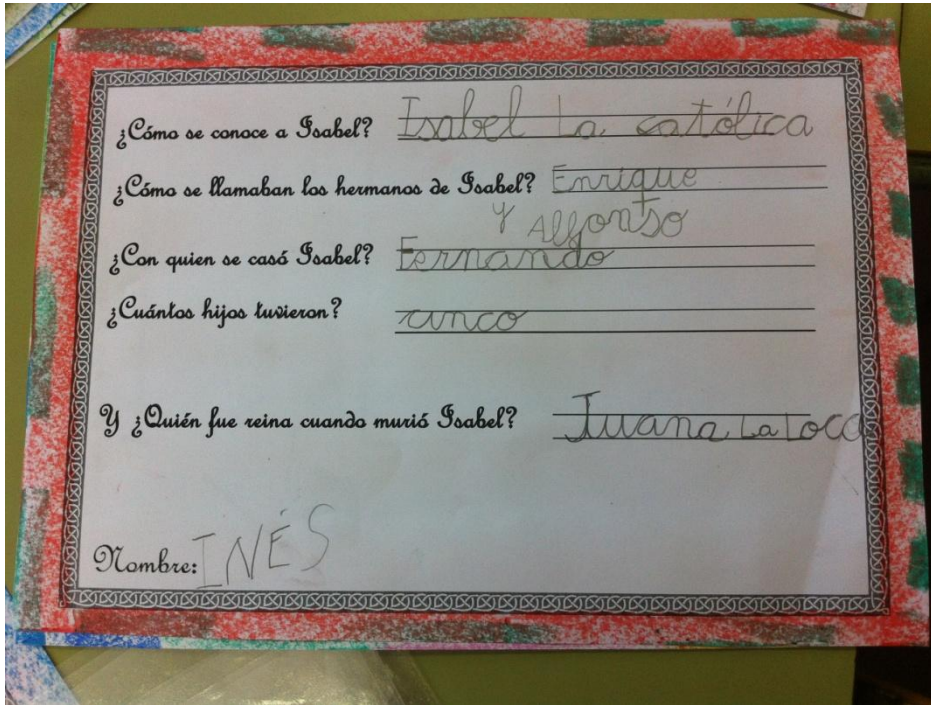 ¿Cómo se conoce a Isabel? Isabel La católica
¿Cómo se llamaban los hermanos de Isabel? Enrique
y Alfontso
¿Con quien se casó Isabel? Fernando
¿Cuántos hijos tuvieron? cinco
Y ¿Quién fue reina cuando murió Isabel? Juana La Loca
Nombre: INÉS